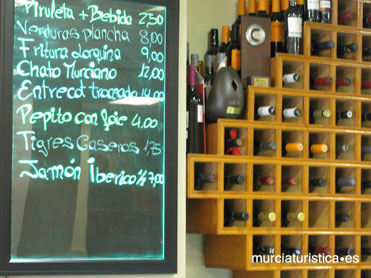 Piruleta + Bebida 2,50
Verduras plancha 8,00
Fritura Lorquina 9,00
Chato Murciano 12,00
Entrecot troceado 14,00
Pepito con foie 4,00
Tigres Caseros 1,75
Jamón Iberico ½ 7,00
murciaturistica.es